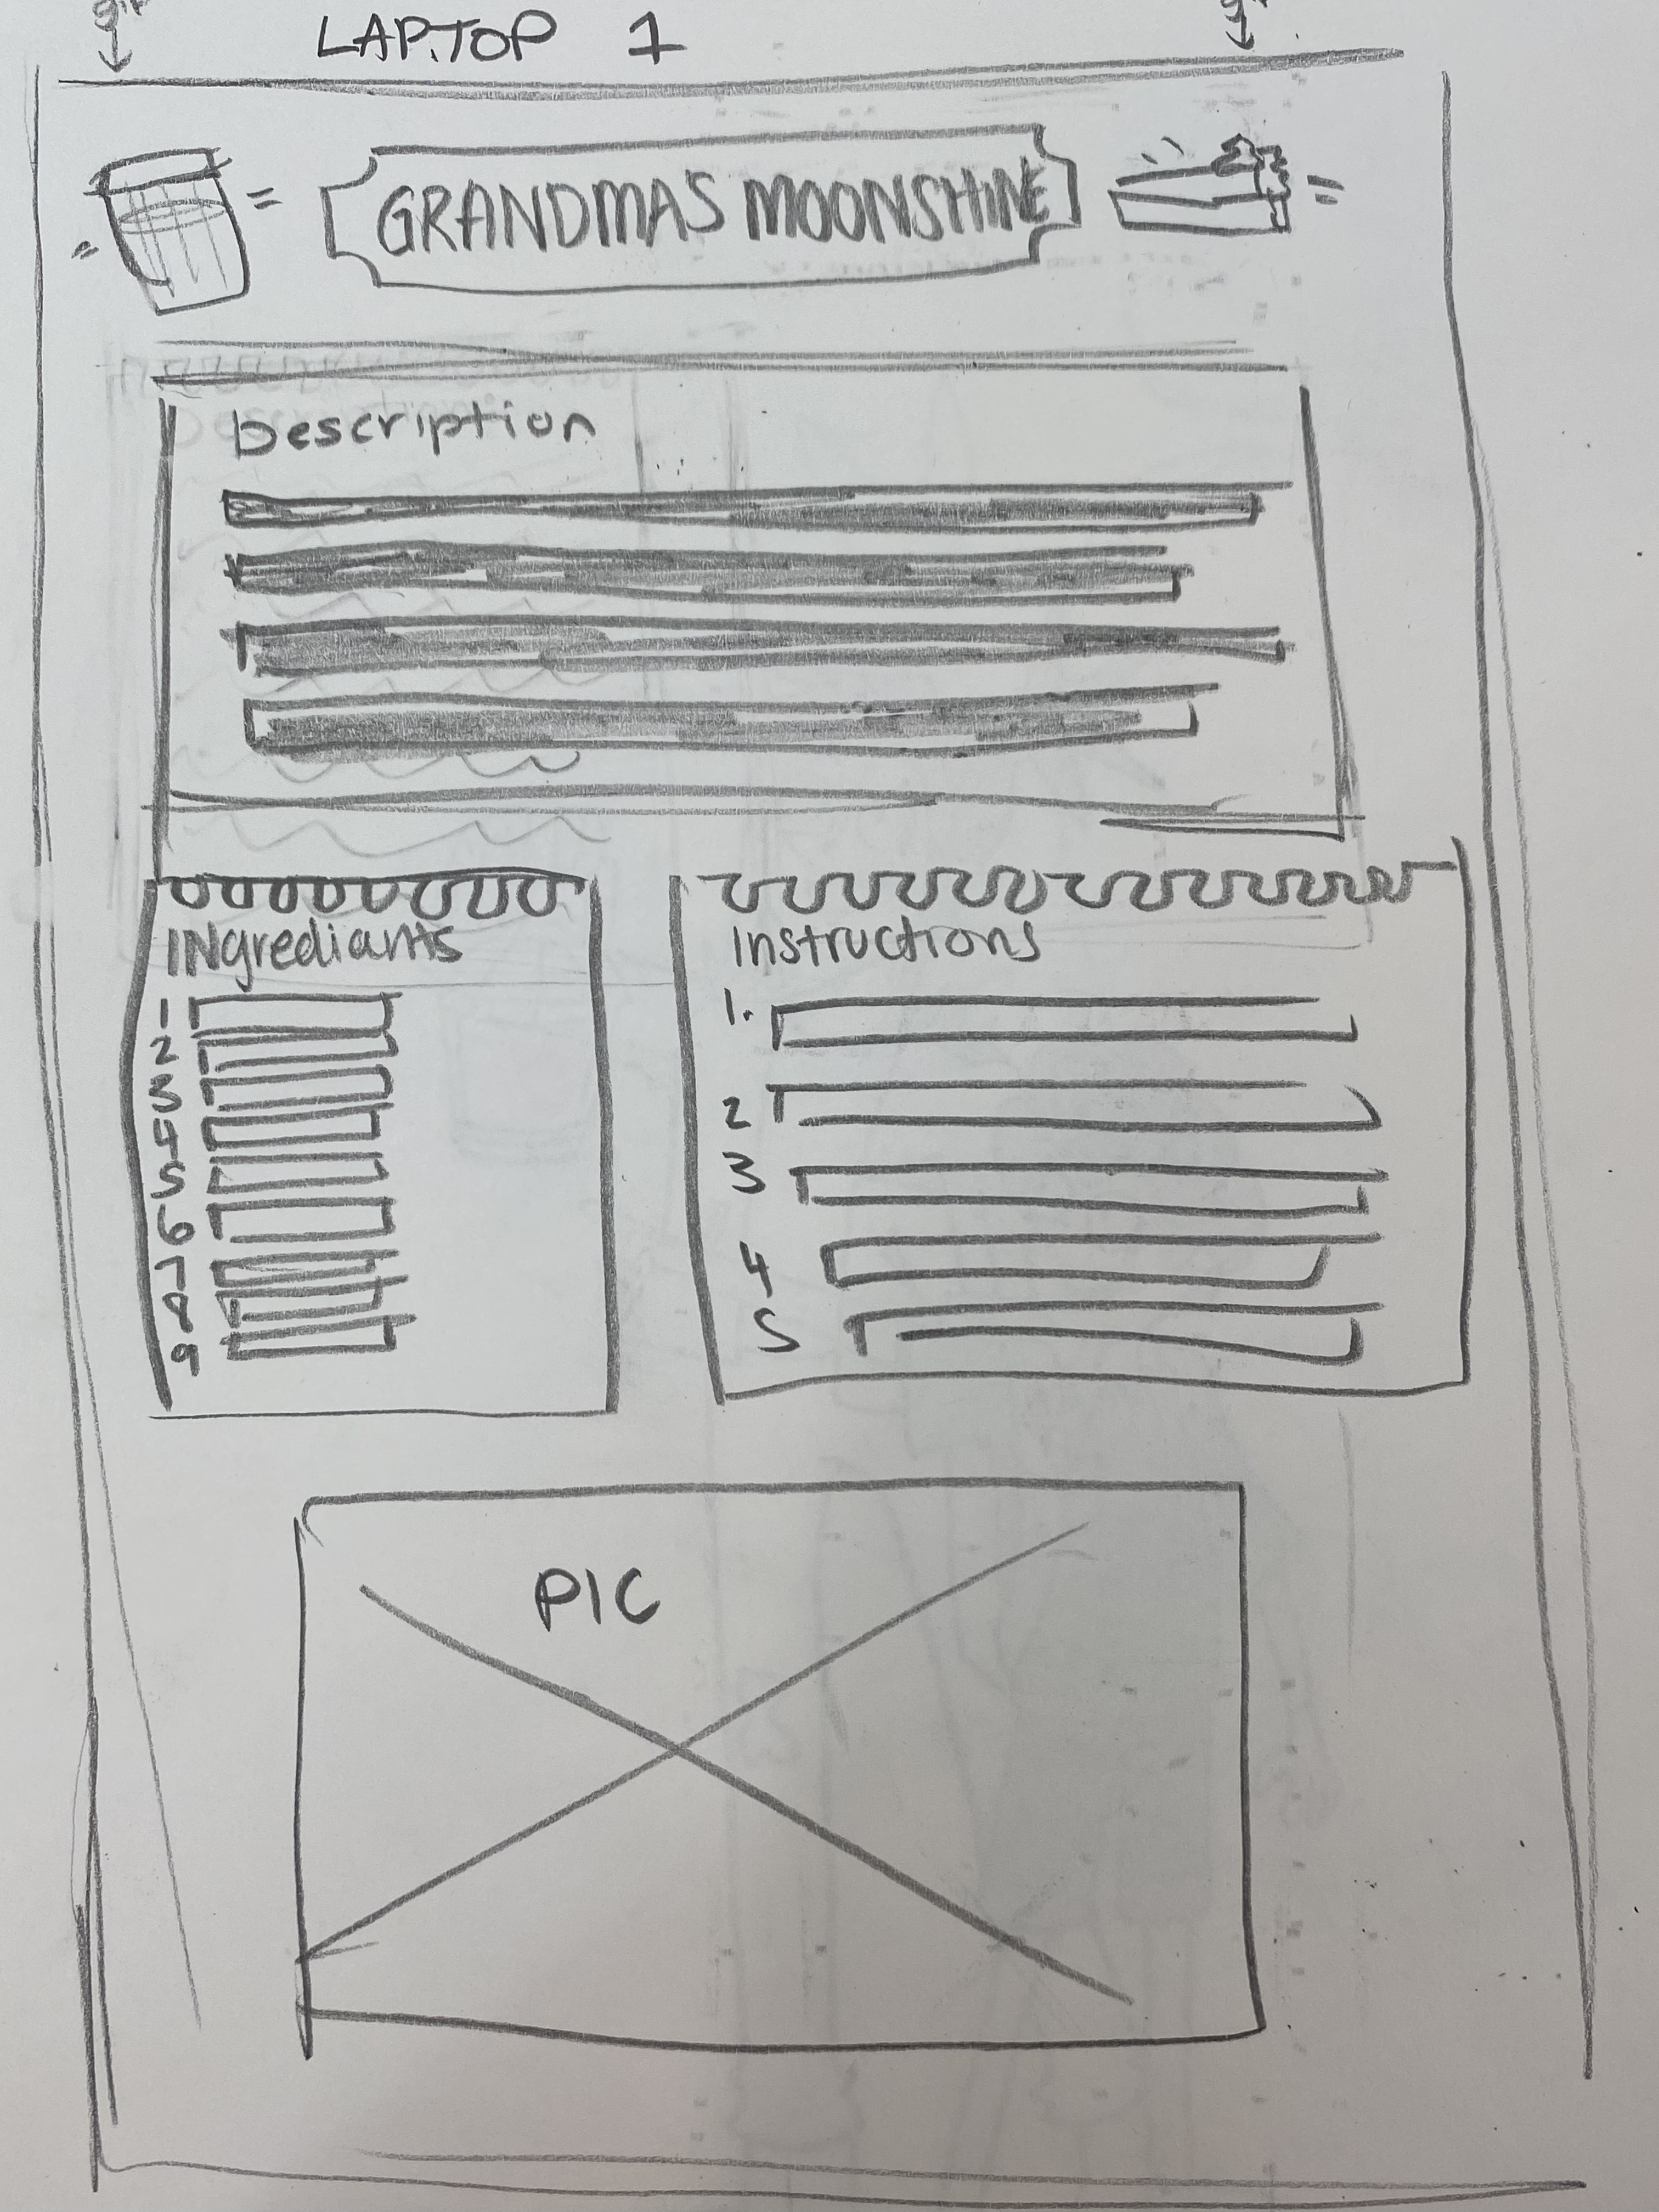 LAPTOP 1
GRANDMAS MOONSHINE
Description
INgrediants
1
2
3
4
5
6
7
8
9
Instructions
1.
2
3
4
5
PIC